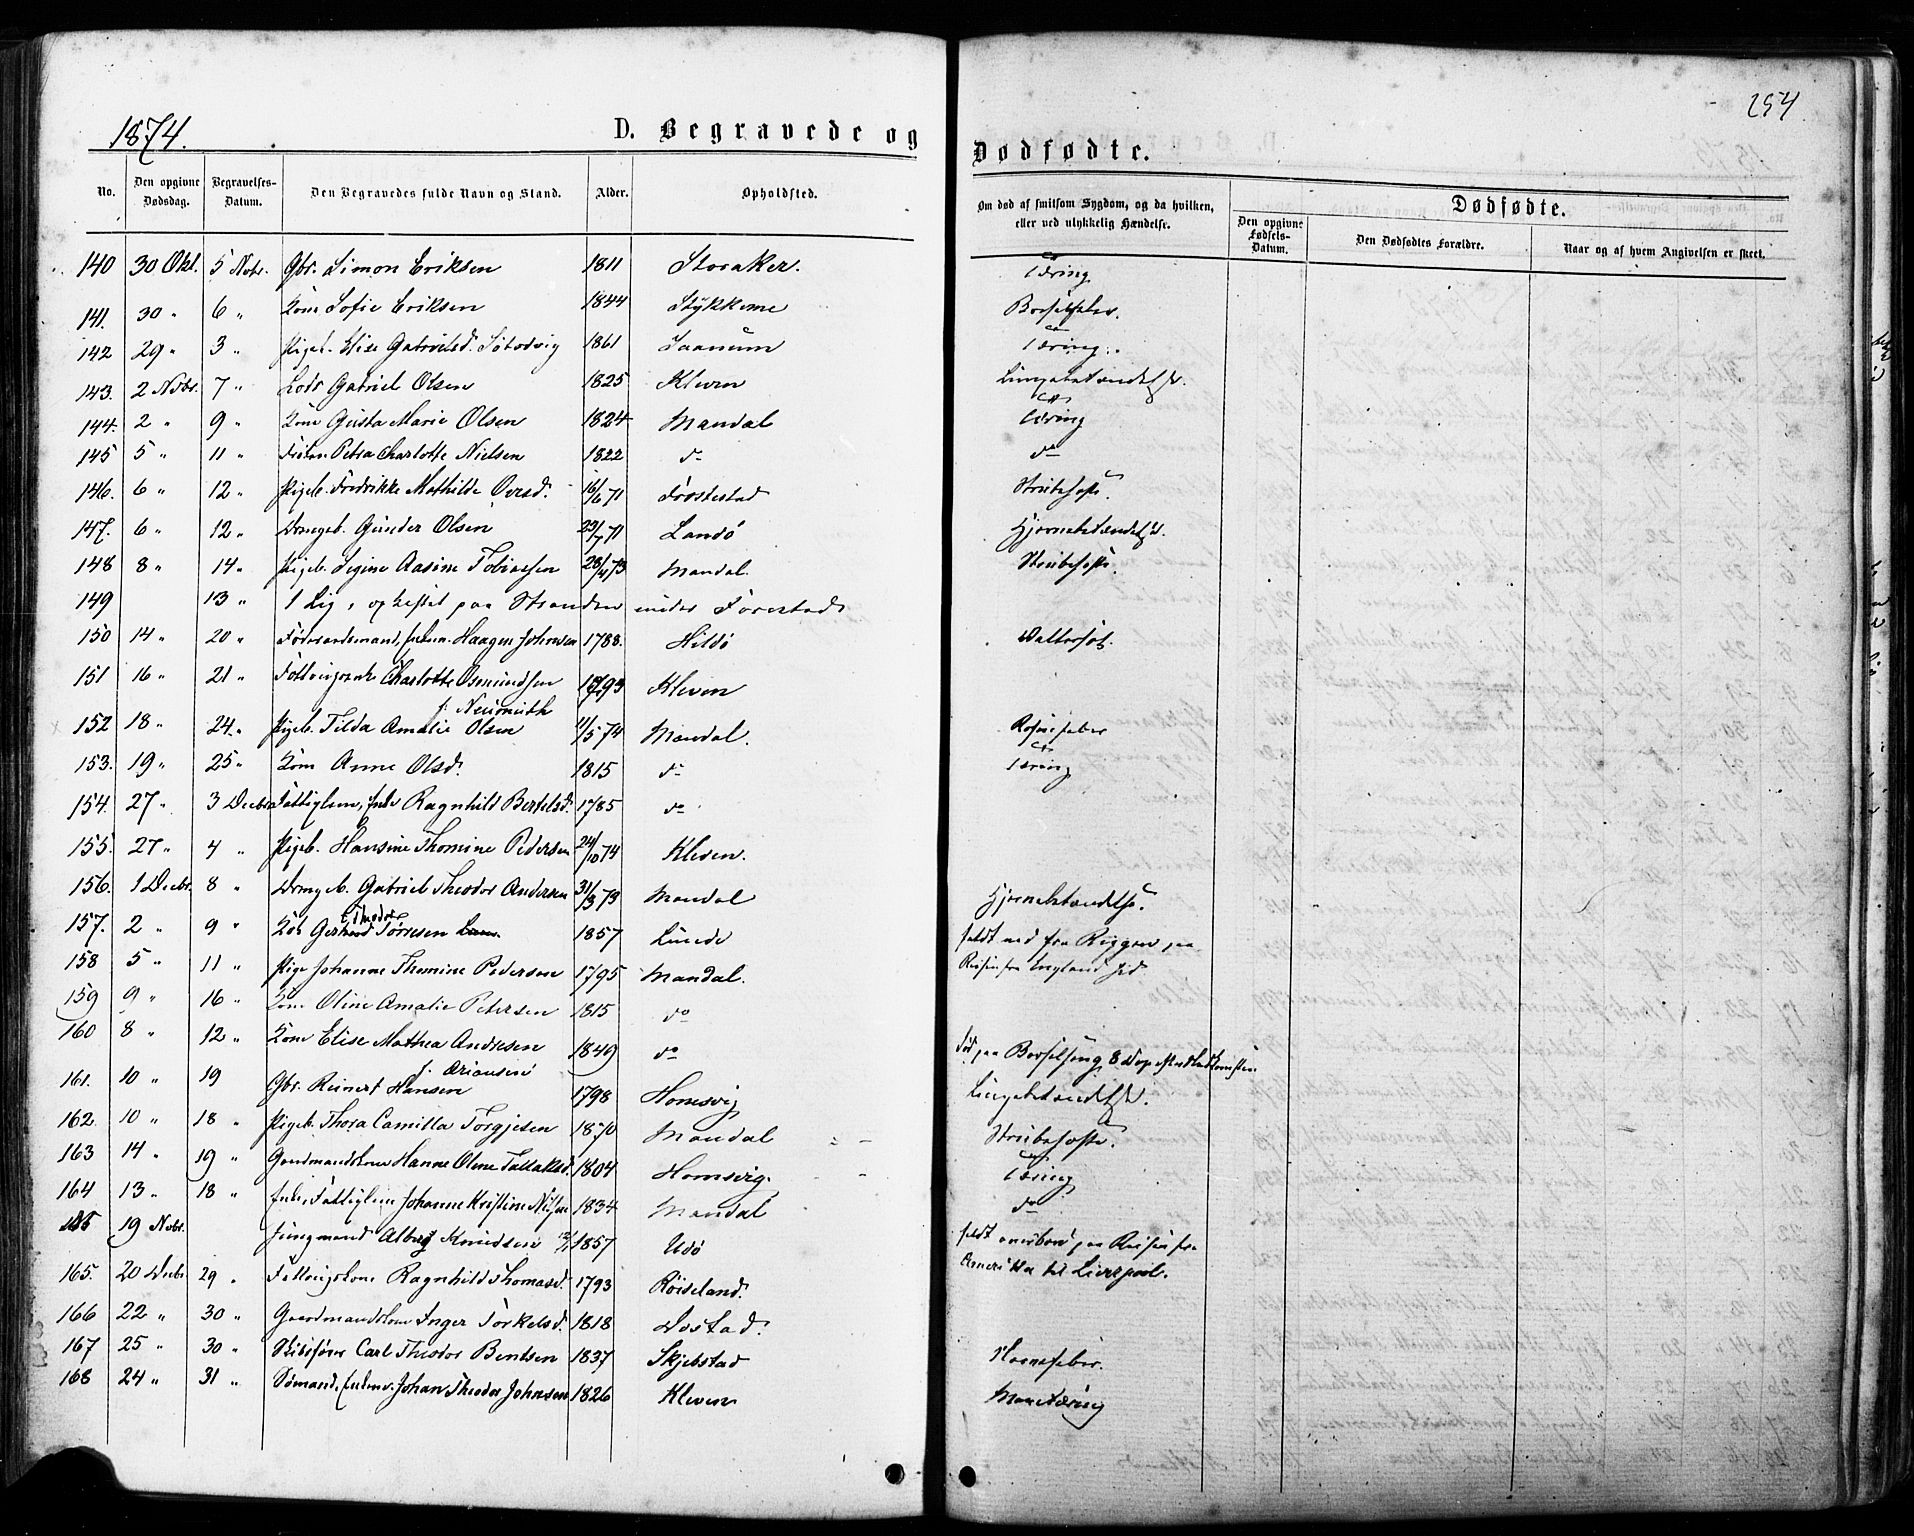 254
1874.
D. Begravede og
Dødfødte.
No.
Den opgivne Dødsdag.
Begravelses-Datum.
Den Begravedes fulde Navn og Stand.
Alder.
Opholdsted.
Om død af smitsom Sygdom, og da hvilken, eller ved ulykkelig Hændelse.
Dødfødte.
Den opgivne Fødsels-Datum.
Den Dødfødtes Forældre.
Naar og af hvem Angivelsen er skeet.
140 30 Okt. 5 Novbr. Gbr. Simon Eriksen 1811 Storaker. Tæring
141. 30 " 6 " Kone Sofie Eriksen 1844 Stykkene Barselfeber.
142 29 " 3 " Pigeb. Elise Gabrielsd. 1861 Saanum Tæring.
143. 2 Novbr. 7 " Lods Gabriel Olsen 1825 Kleven Lungebetændelse.
144. 2 " 9 " Kone Gusta Marie Olsen 1824 Mandal Tæring
145 5 " 11 " Petra Charlotte Nielsen 1822 do do
146. 6 " 12 " Pigeb. Fredrikke Mathilde Ovesd. 16/6 71 Frøstestad Strubehoste.
147. 6 " 12 " Drengeb. Gunder Olsen 29/7 71 Landø Hjernebetændelse.
148 8 " 14 " Pigeb. Signe Aasine Tobiasen 28/4 73 Mandal. Strubehoste.
149 13 " 1 Lig, opkastet paa Stranden under
150 14 " 20 " Føderaadsmand, Enkem. Haagen Johnsen 1788. Hildø Vattersot.
151 16 " 21 " Charlotte Osmundsen 1793 Kleven
f. Neumuth
152 18 " 24. " Pigeb. Tilda Amalie Olsen 11/5 74 Mandal.
153. 19 " 25 " Kone Anne Olsd. 1815 do Tæring
154. 27 " 3 Decbr. Fattiglem, Enke Ragnhild Bertelsd. 1785 do
155. 27 " 4 " Pigeb. Hansine Thomine Pedersen 24/10 74 Kleven.
156. 1 Decbr. 8 " Drengeb. Gabriel Theodor Andersen 31/3 73 Mandal Hjernebetændelse.
157. 2 " 9 " Theodor Tørresen 1857 Lunde faldt ned fra Riggen paa
Reisen fra England hid
158 5 " 11 " Pige Johanne Thomine Pedersen 1795 Mandal.
159 9 " 16 " Kone Oline Amalie Petersen 1815 do
160 8 " 12 " Kone Elise Mathea Andresen 1849 do Død paa Barselseng 8 Dage efter
161. 10 " 19 Gbr. Reinert Hansen 1798 Homsvig Lungebetændelse.
162. 10 " 18 " Pigeb. Thora Camilla Torgjesen 1870 Mandal Strubehoste.
163 14 " 19 " Gaardmandskone Hanne Oline Tallaksd. 1804 Homsvig. Tæring
164 13 " 18 " Enke, Fattiglem Johanne Kristine Nilsen 1834 Mandal do
19 Novbr. Jungmand Albert Knudsen 1857 Udø faldt overbord paa Reisen fra
Amerika til Liverpool.
165. 20 Decbr. 29 " Ragnhild Thomasd. 1793 Røiseland.
166 22 " 30 " Gaardmandskone Inger Torkelsd. 1818
167 25 " 30 " Skibsfører Carl Theodor Bentsen 1837 Skjebstad
168 24 " 31 " Sømand, Enkem. Johan Theodor Johnsen 1826 Kleven Mavetæring